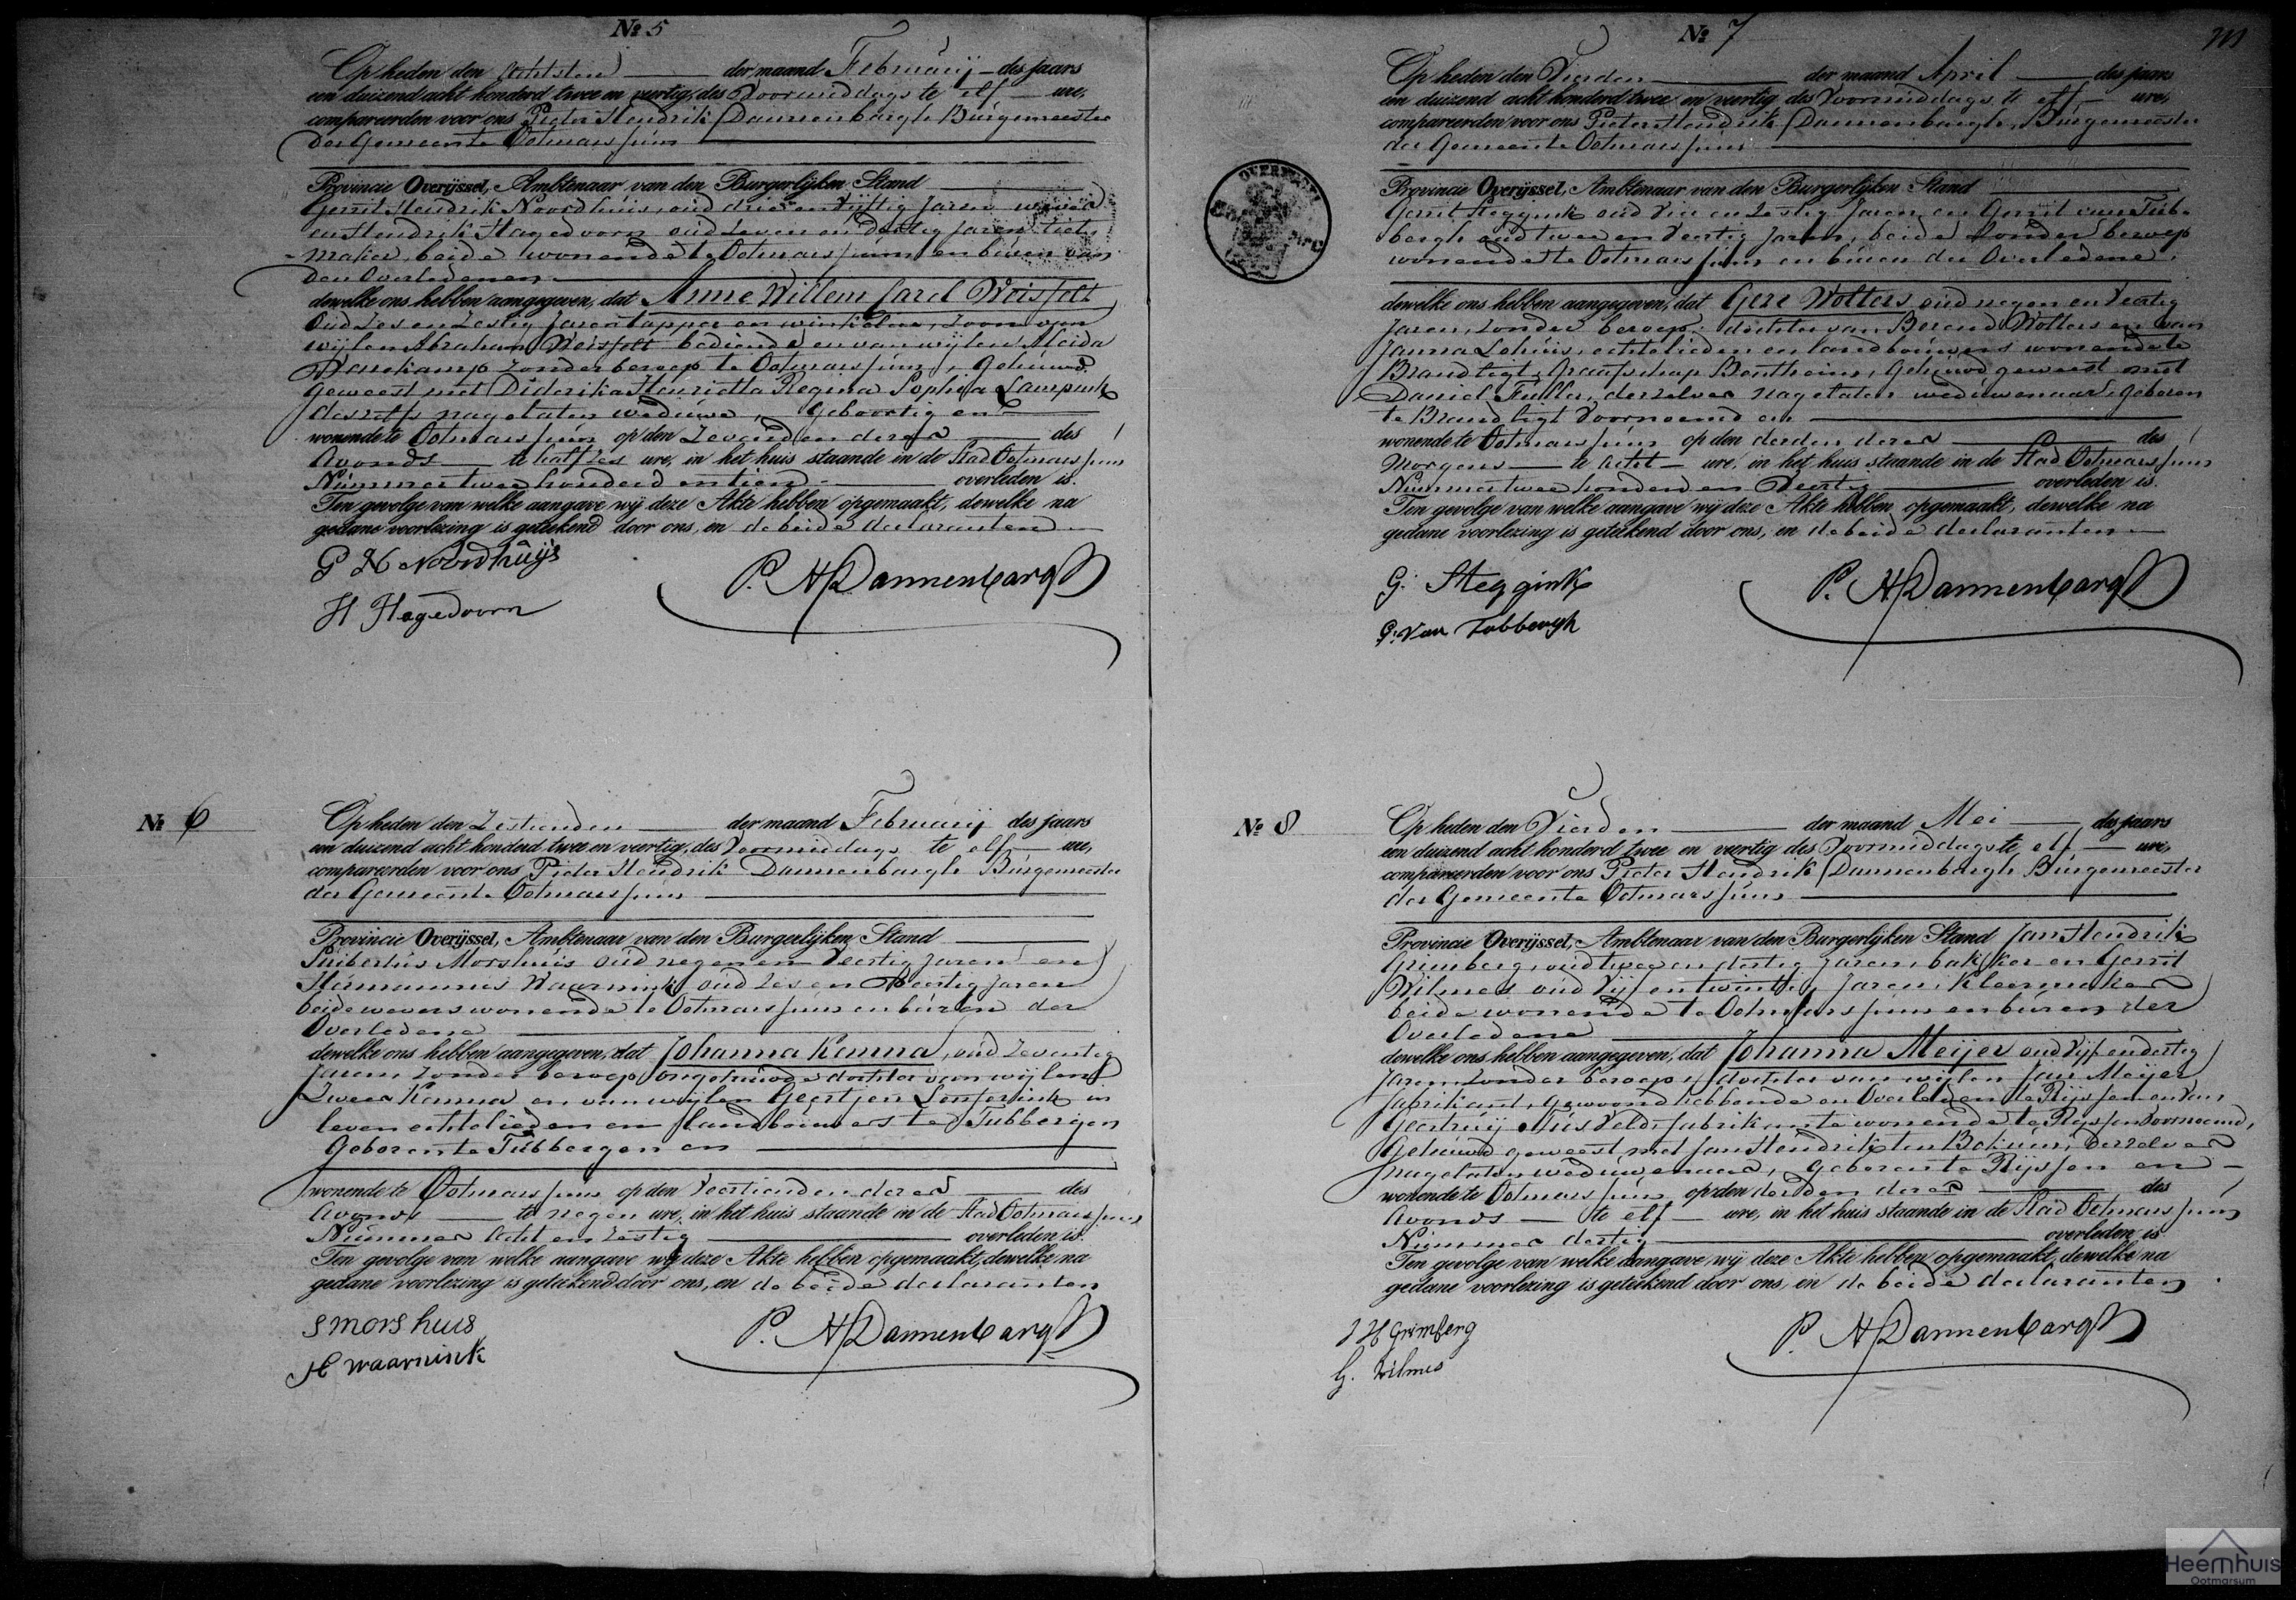 № 5
Op heden den achtsten der maand Februarij des jaars
een duizend acht honderd twee en veertig, des Voormiddags te elf ure,
compareerden voor ons Pieter Hendrik Dannenbargh Burgemeester
der Gemeente Ootmarssum
Provincie Overijssel, Ambtenaar van den Burgerlijken Stand
Gerrit Hendrik Noordhuis, oud drie en vijftig Jaren
en Hendrik Hagedoorn oud zeven en dertig jaren
maker, beide wonende te Ootmarssum en buren van
den Overledenen
dewelke ons hebben aangegeven, dat Anne Willem Carel Weisfelt
oud zes en zestig Jaren tapper en winkelier, zoon van
wijlen Abraham Weisfelt bediende en van wijlen Aleida
zonder beroep te Ootmarssum, Gehuwd
geweest met Diderika Henrietta Regina Sophia Lampink
desselfs nagelaten weduwe, geboortig en
wonende te Ootmarssum op den Zevenden dezer des
Avonds te half zes ure, in het huis staande in de Stad Ootmarssum
Nummer twee honderd en tien overleden is.
Ten gevolge van welke aangave wij deze Akte hebben opgemaakt, dewelke na
gedane voorlezing is geteekend door ons, en de beide declaranten
G H Noordhuijs
H Hagedoorn
P. H Dannenbargh
№ 6
Op heden den Zestienden der maand Februarij des jaars
een duizend acht honderd twee en veertig, des Voormiddags te elf ure,
compareerden voor ons Pieter Hendrik Dannenbargh Burgemeester
der Gemeente Ootmarssum
Provincie Overijssel, Ambtenaar van den Burgerlijken Stand
Suibertus Morshuis oud negen en Veertig Jaren en
Hermannus Waarnink oud zes en Veertig Jaren
beide wevers wonende te Ootmarssum en buren der
Overledene
dewelke ons hebben aangegeven, dat Johanna Kamna, oud zeventig
Jaren zonder beroep ongehuwde dochter van wijlen
Zweer Kamna en van wijlen Geertjen in
leven echtelieden en landbouwers te Tubbergen
Geboren te Tubbergen en
wonende te Ootmarssum op den Veertienden dezer des
Avonds te negen ure, in het huis staande in de Stad Ootmarssum
Nummer Acht en zestig overleden is.
Ten gevolge van welke aangave wij deze Akte hebben opgemaakt, dewelke na
gedane voorlezing is geteekend door ons, en de beide declaranten
S morshuis
H waarnink
P. H Dannenbargh
№ 7
Op heden den Vierden der maand April des jaars
een duizend acht honderd twee en veertig des Voormiddags te elf ure,
compareerden voor ons Pieter Hendrik Dannenbargh, Burgemeester
der Gemeente Ootmarssum
Provincie Overijssel, Ambtenaar van den Burgerlijken Stand
Gerrit Steggink oud Vier en zestig Jaren en Gerrit van Tub-
bergh oud twee en Veertig Jaren, beide zonder beroep
wonende te Ootmarssum en buren der Overledene,
dewelke ons hebben aangegeven, dat Gese Wolters oud negen en Veertig
Jaren, zonder beroep, dochter van Berend Wolters en van
Janna Lohuis, echtelieden en landbouwers wonende te
Brandligt, Graafschap Bentheim, Gehuwd geweest met
Daniel Fuller, derzelver nagelaten weduwenaar, geboren
te Brandligt voornoemd en
wonende te Ootmarssum op den derden dezer des
Morgens te acht ure, in het huis staande in de Stad Ootmarssum
Nummer twee honderd en Veertig overleden is.
Ten gevolge van welke aangave wij deze Akte hebben opgemaakt, dewelke na
gedane voorlezing is geteekend door ons, en de beide declaranten
G: Steggink
G: Van Tubbergh
P. H Dannenbargh
№ 8
Op heden den Vierden der maand Mei des jaars
een duizend acht honderd twee en veertig des Voormiddags te elf ure,
compareerden voor ons Pieter Hendrik Dannenbargh Burgemeester
der Gemeente Ootmarssum
Provincie Overijssel, Ambtenaar van den Burgerlijken Stand Jan Hendrik
Grimberg, oud twee en dertig Jaren, bakker en Gerrit
Wilmes oud Vijf en twintig Jaren, Kleermaker
beide wonende te Ootmarssum en buren der
Overledene
dewelke ons hebben aangegeven, dat Johanna Meijer oud Vijf en dertig
Jaren zonder beroep, dochter van wijlen Jan Meijer
fabrikant, gewoond hebbende en Overleden te Rijssen en van
Geertruij fabrikante wonende te Rijssen voornoemd,
Gehuwd geweest met Jan Hendrik ten derzelver
nagelaten weduwenaar, geboren te Rijssen en
wonende te Ootmarssum op den derden dezer des
Avonds te elf ure, in het huis staande in de Stad Ootmarssum
Nummer dertig overleden is
Ten gevolge van welke aangave wij deze Akte hebben opgemaakt, dewelke na
gedane voorlezing is geteekend door ons, en de beide declaranten
J H Grimberg
G. Wilmes
P. H Dannenbargh
Heemhuis
Ootmarsum